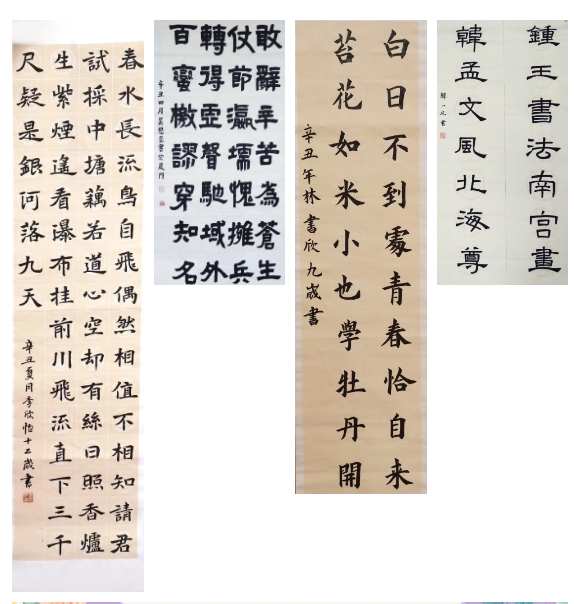 春水長流鳥自飛偶然相值不相知請君
試採中塘藕若道心空却有絲日照香爐
生紫煙遙看瀑布挂前川飛流直下三千
尺疑是銀河落九天
辛丑夏月李欣怡十歲書
敢辭辛苦為蒼生
仗節瀛壖愧擁兵
轉得聲馳域外
百蠻檄謬穿知名
辛丑四月書於廈門
白日不到處青春恰自来
苔花如米小也學牡丹開
辛丑年林書欣九歲書
鍾王書法南宫畫
韓孟文風北海尊